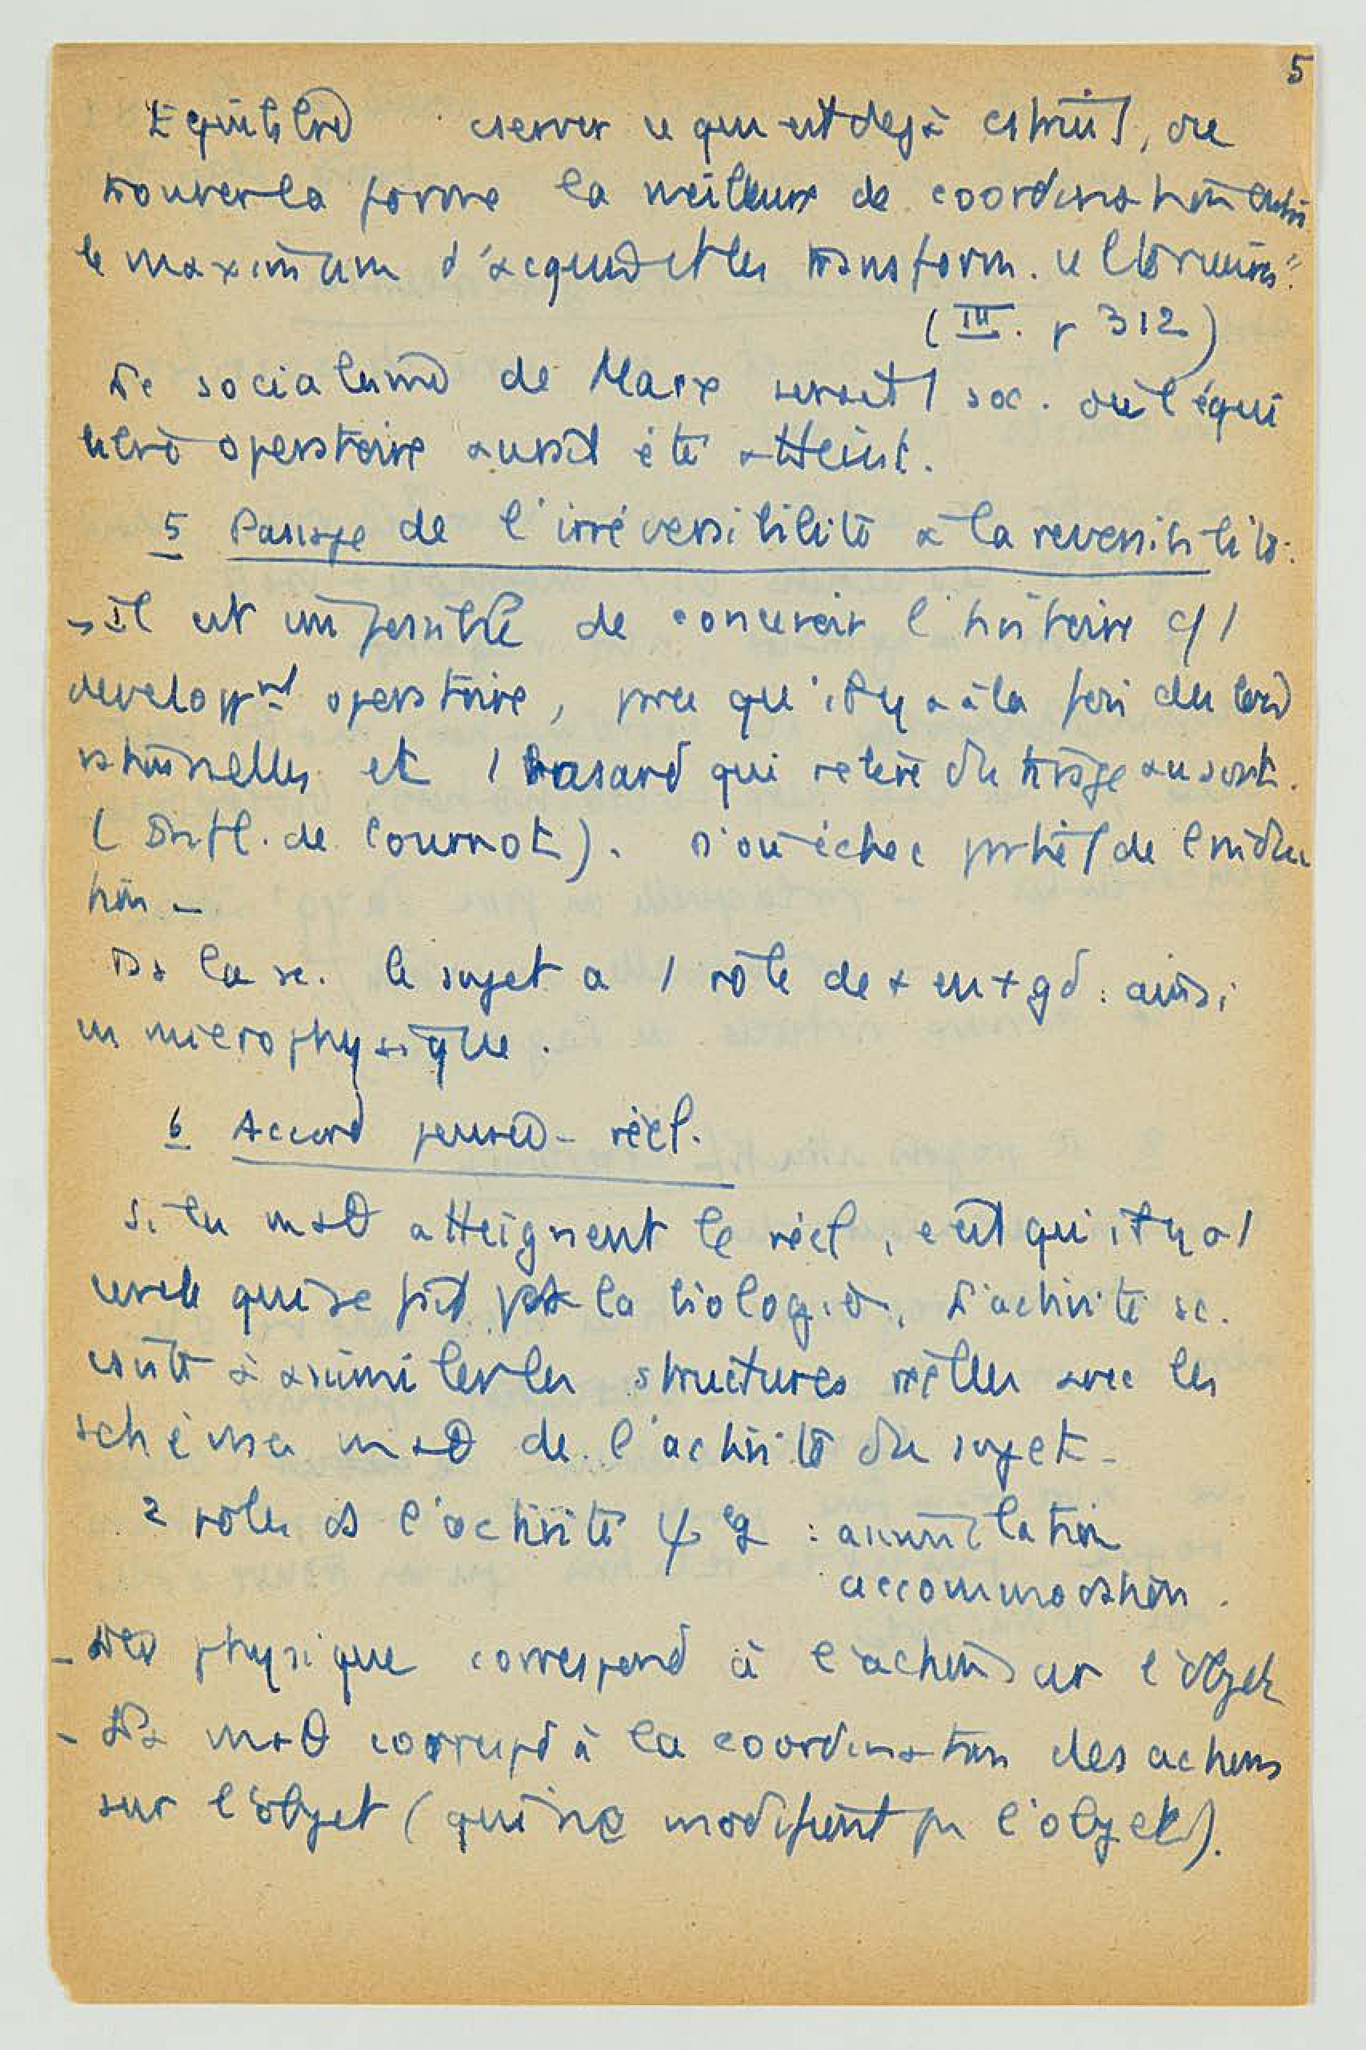 5
Equilibre cserver ce qui est déjà cstruit, ou
trouver la forme la meilleure de coordination entre
le maximum d'acquis et les transform. ultérieures".
(III. p 312)
Le socialisme de Marx serait 1 soc. où l'équi
libre operatoire aurait été atteint.
5 Passage de l'irréversibilité à la reversibilité.
Il est impossible de concevoir l'histoire c/ 1
developpnt operatoire, pce qu'il y a à la fois des lois
et 1 hasard qui relève du tirage au sort.
(Infl. de Cournot). D'où échec partiel de l'induc
tion _
Ds la sc. le sujet a 1 rôle de + en + gd : ainsi
en microphysique.
6 Accord pensée - réel.
Si les math atteignent le réel, c'est qu'il y a 1
cercle qui se fait par la biologie. L'activité sc.
csiste à assimiler les structures réelles avec les
schémas math de l'activité du sujet _
2 rôles ds l'activité ψ : assimilation
accommodation.
_ physique correspond à l'action sur l'objet
- La math correspd à la coordination des actions
sur l'objet (qui ne modifient pas l'objet).